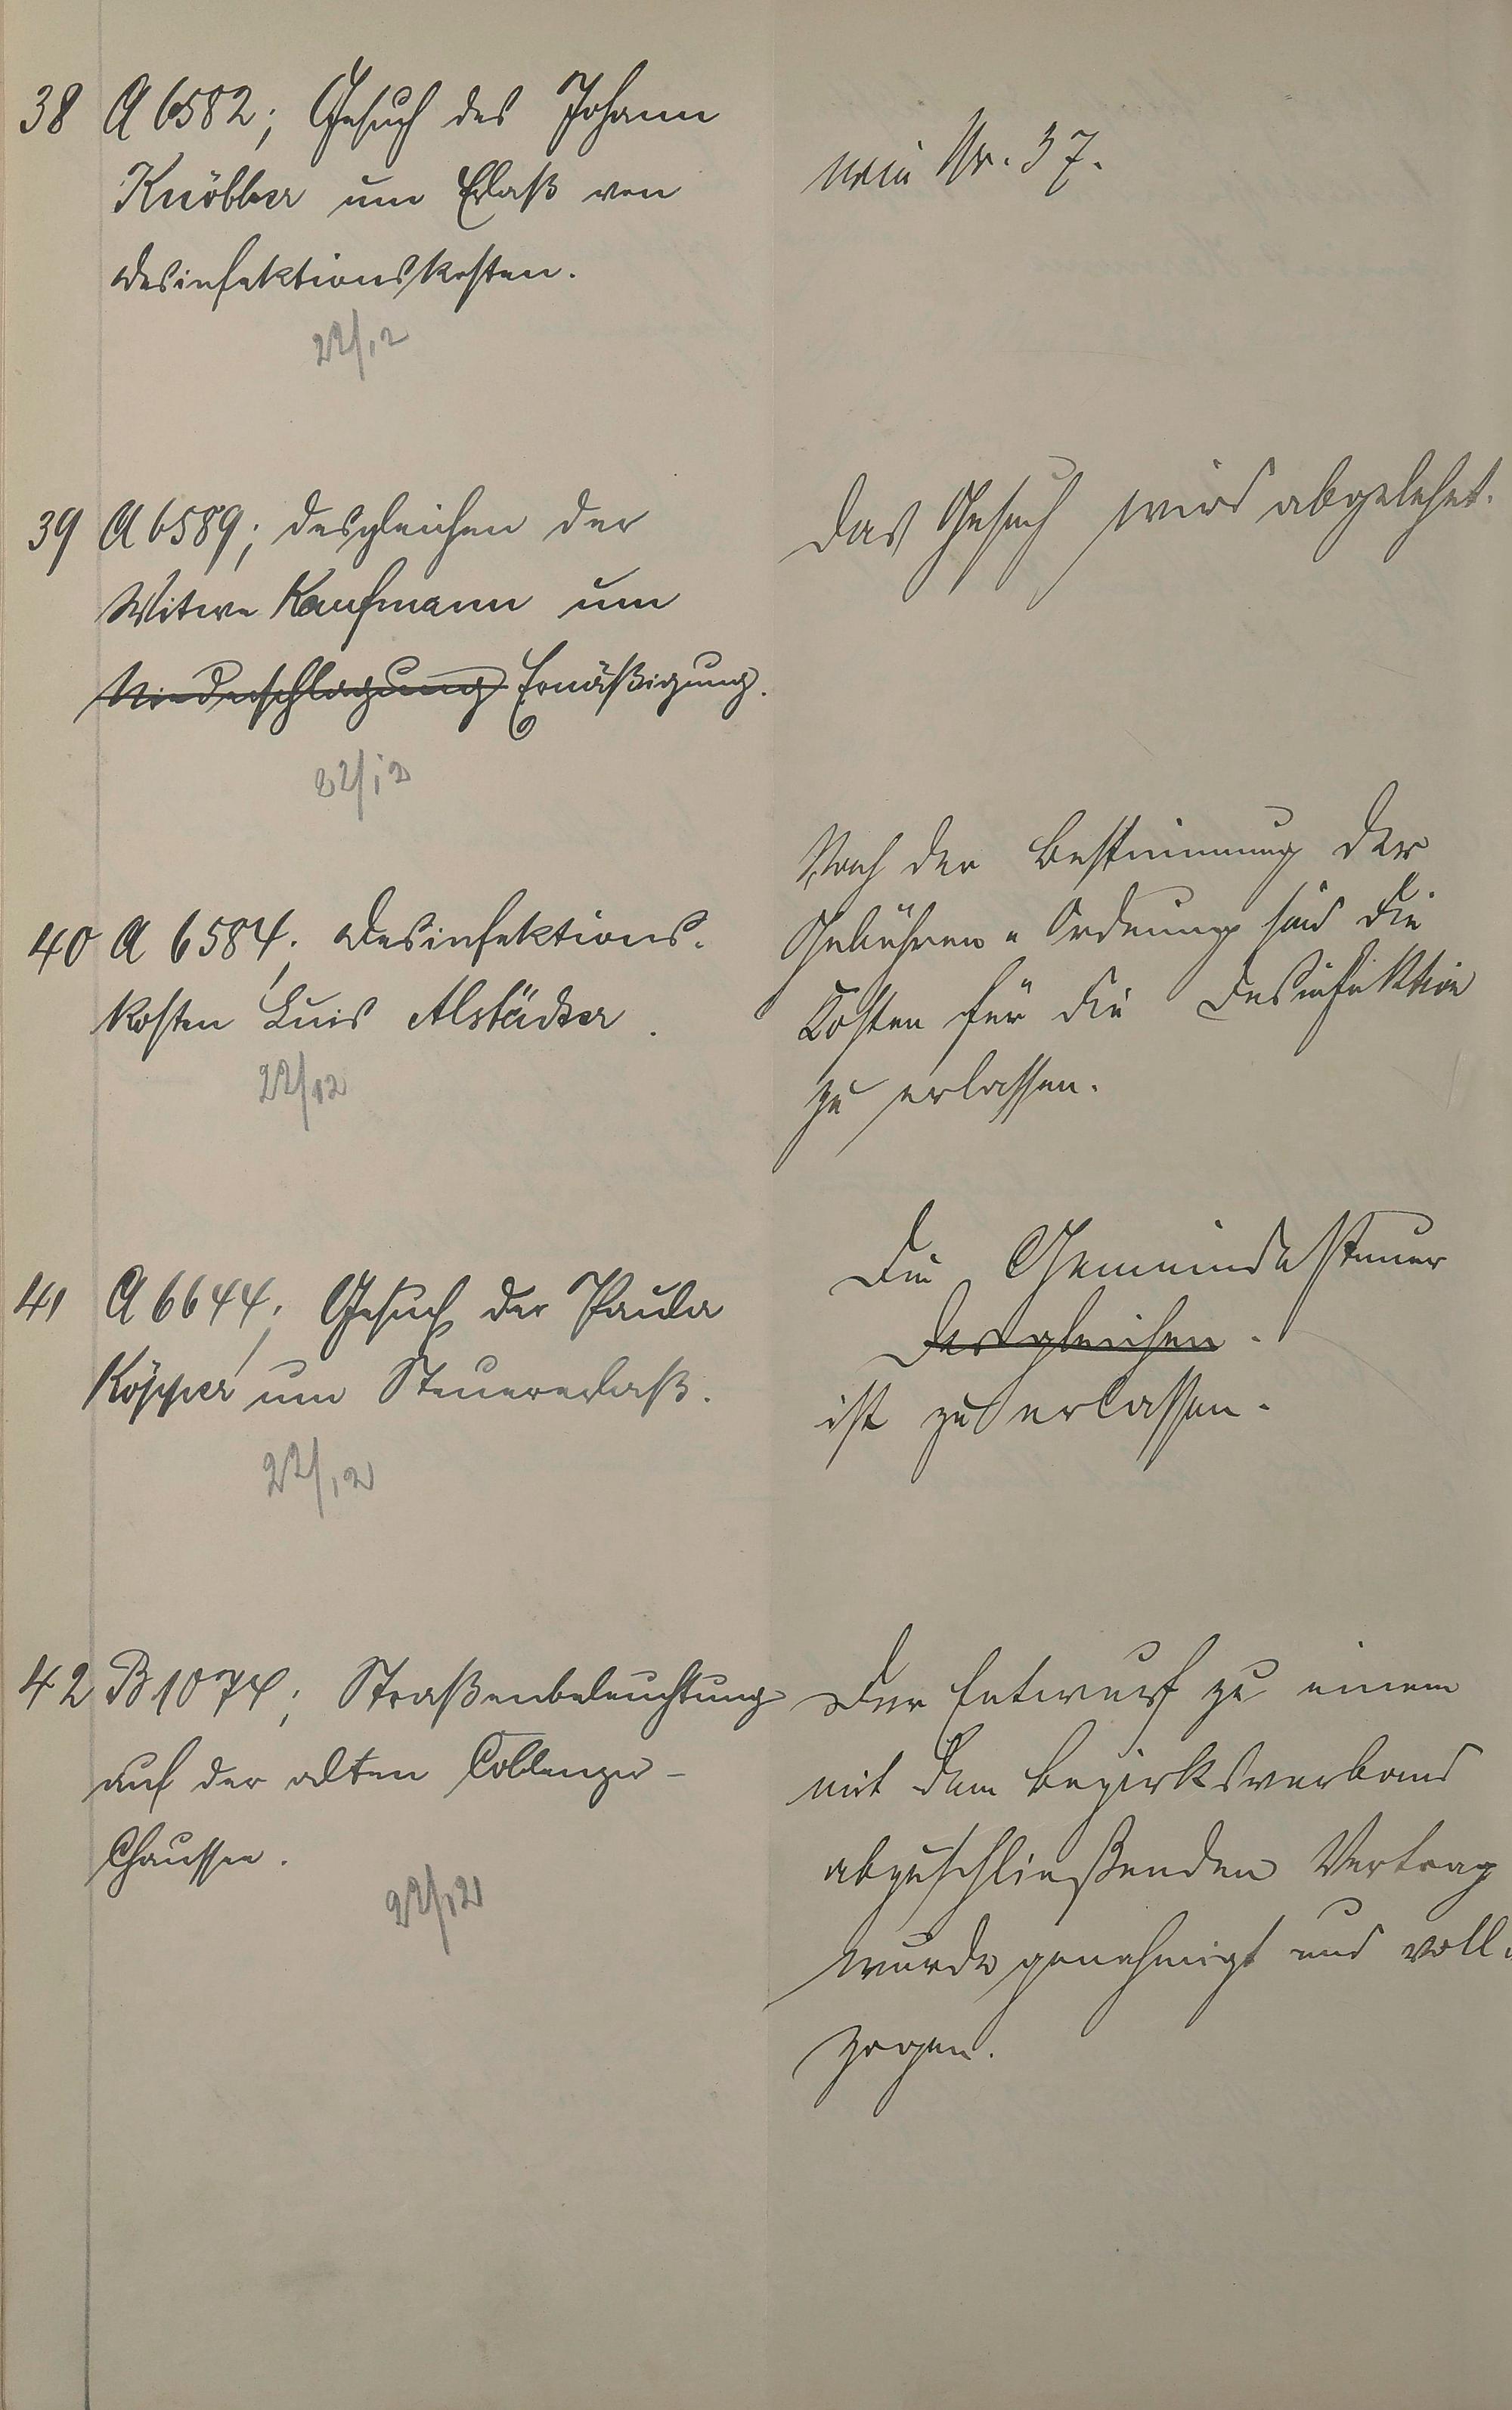 38 A 6582; Gesuch des Johann
Knöbber um Erlaß von
Desinfektionskosten.
22/12
wie Nr. 37.
39 A 6589; desgleichen der
Witwe Kaufmann um
Niederschlagung Ermäßigung.
22/12
Das Gesuch wird abgelehnt.
40 A 6584; Desinfektions-
kosten Luis Alstädter.
22/12
Nach der Bestimmung der
Gebühren-Ordnung sind die
Kosten für die Desinfektion
zu erlassen.
41 A 6644; Gesuch der Paula
Köpper um Steuererlaß.
22/12
Die Gemeindesteuer
Desgleichen.
ist zu erlassen.
42 B 1074; Straßenbeleuchtung
auf der alten Coblenzer-
Chaussee.
22/12
Der Entwurf zu einem
mit dem Bezirksverband
abzuschließenden Vertrag
wurde genehmigt und voll-
zogen.